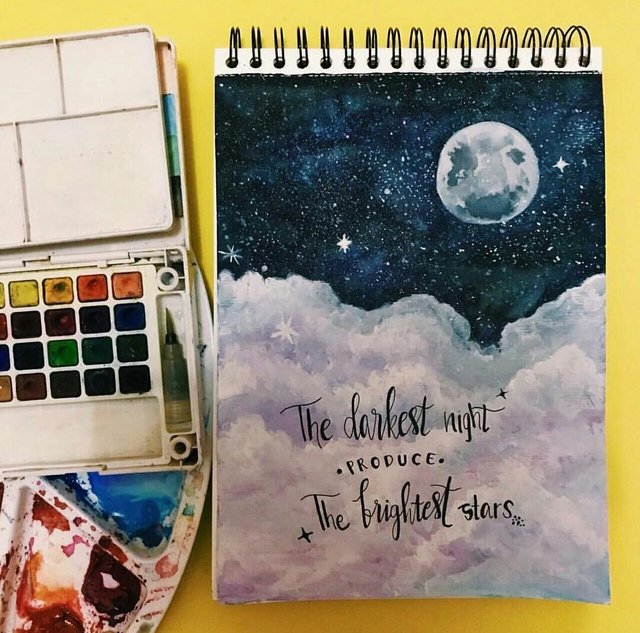 The darkest night
• PRODUCE •
The brightest stars